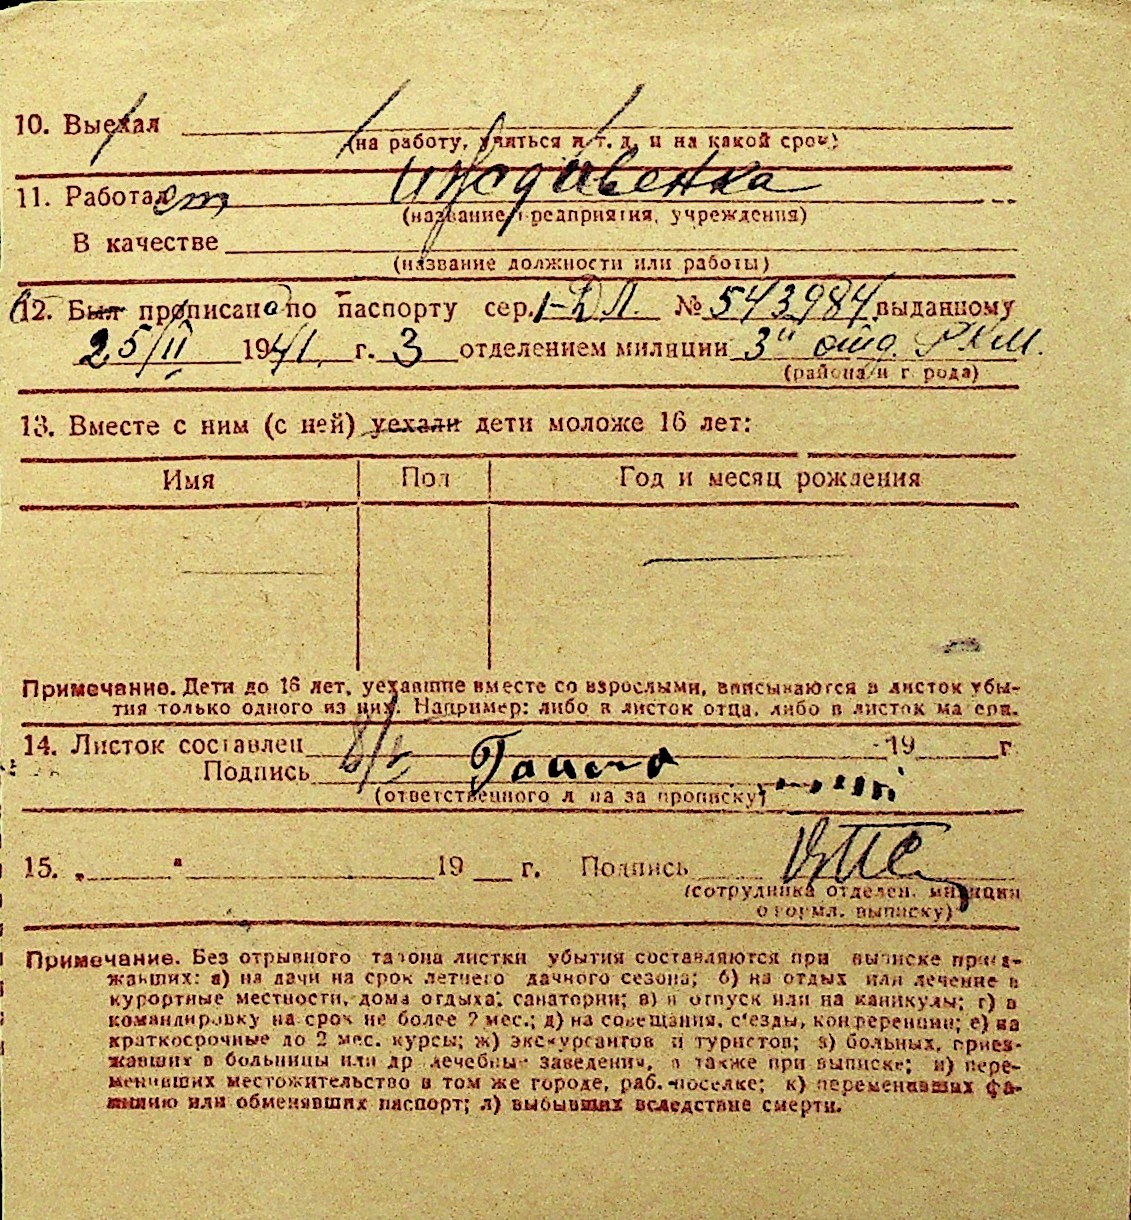 10. Выехал
(на работу, учиться и т. д. и на какой срок)
11. Работает иждивенка
(название предприятия, учреждения)
В качестве
(название должности или работы)
12. Был прописана по паспорту сер. I-ДЛ. № 543984 выданному
25/II 1941 г. 3 отделением милиции 3м отд. РКМ.
(района и города)
13. Вместе с ним (с ней) уехали дети моложе 16 лет:
Имя Пол Год и месяц рождения
Примечание. Дети до 16 лет, уехавшие вместе со взрослыми, вписываются в листок убы-
тия только одного из них. Например: либо в листок отца, либо в листок матери.
14. Листок составлен 19 г.
Подпись
(ответственного лица за прописку)
15. „ " 19 г. Подпись
(сотрудника отделен. милиции
оформл. выписку)
Примечание. Без отрывного талона листки убытия составляются при выписке приез-
жавших: а) на дачи на срок летнего дачного сезона; б) на отдых или лечение в
курортные местности, дома отдыха, санатории; в) в отпуск или на каникулы; г) в
командировку на срок не более 2 мес.; д) на совещания, с'езды, конференции; е) на
краткосрочные до 2 мес. курсы; ж) экскурсантов и туристов; з) больных, приез-
жавших в больницы или др лечебные заведения, а также при выписке; и) пере-
менивших местожительство в том же городе, раб. поселке; к) переменивших фа-
милию или обменявших паспорт; л) выбывших вследствие смерти.